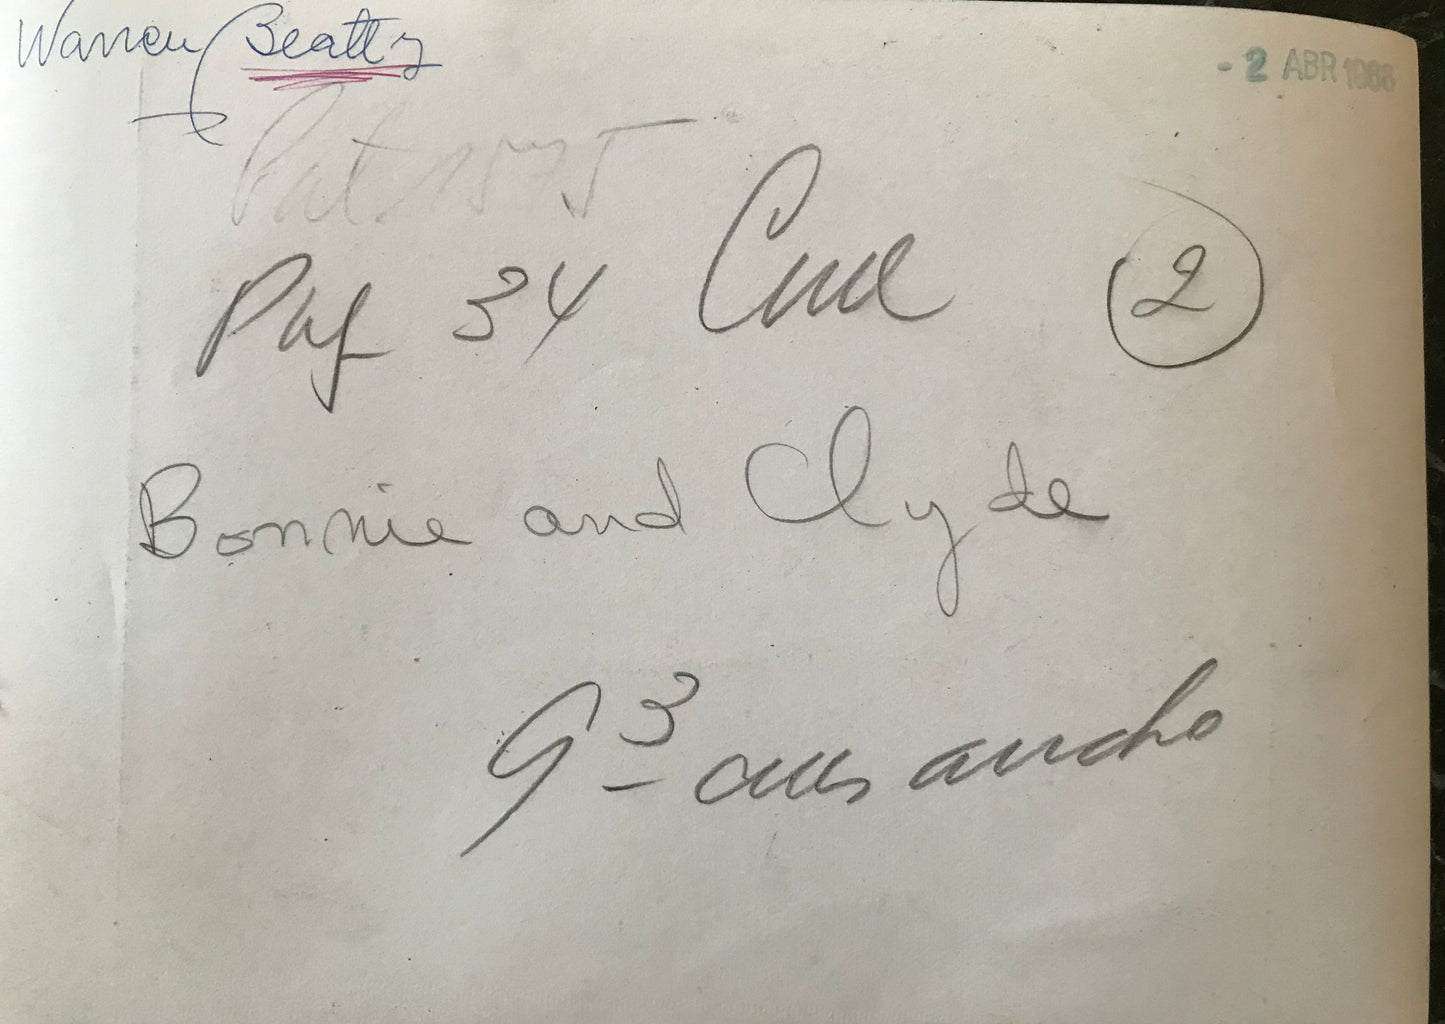 Warren Beatty
- 2 ABR 1968
Pag 34 Cine 2
Bonnie and Clyde
9 3 cms ancho